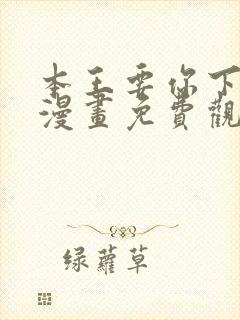 本王要你下
漫畫免費觀
绿蘿草